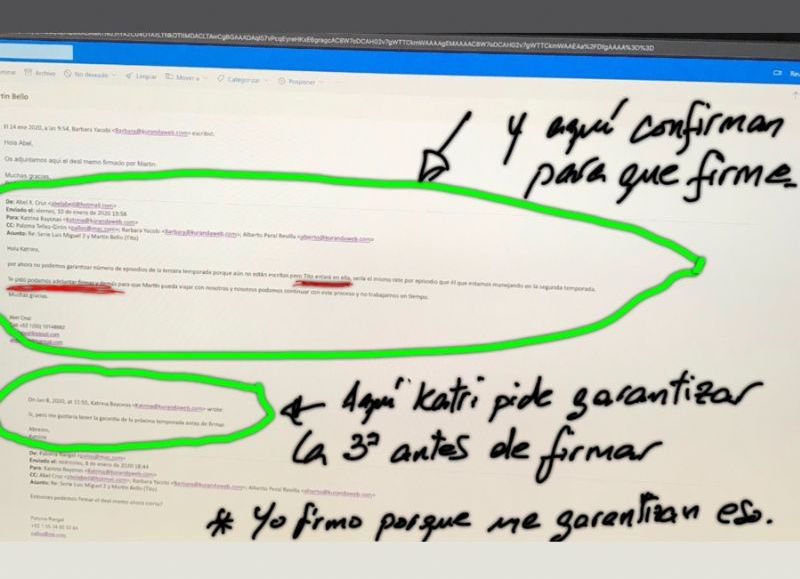 Archivo No deseado Limpiar Mover a Categorizar Posponer
tin Bello
El 14 ene 2020, a las 9:54, Barbara Yacobi <Barbara@kurandaweb.com> escribió:
Hola Abel,
Os adjuntamos aquí el deal memo firmado por Martin.
Muchas gracias,
Y aquí confirman
para que firme.
De: Abel R. Cruz
Enviado el: viernes, 10 de enero de 2020
Para: Katrina Bayonas <Katrina@kurandaweb.com>
CC: Paloma Barbara Yacobi <Barbara@kurandaweb.com>; Alberto Peral Revilla <alberto@kurandaweb.com>
Asunto: Re: Serie Luis Miguel 2 y Martin Bello (Tito)
Hola Katrina,
por ahora no podemos garantizar número de episodios de la tercera temporada porque aún no están escritas pero Tito estará en ella, sería el mismo rate por episodio que él que estamos manejando en la segunda temporada.
Te pido podamos adelantar firmas y demás para que Martin pueda viajar con nosotros y nosotros podamos continuar con este proceso y no trabajarnos en tiempo.
Muchas gracias.
Abel Cruz
On Jan 8, 2020, at Katrina Bayonas <Katrina@kurandaweb.com> wrote:
Si, pero me gustaría tener la garantía de la próxima temporada antes de firmar.
Abrazos,
Katrina
Aquí Katri pide garantizar
la 3ª antes de firmar
De: Paloma Rangel
Enviado el: miércoles, 8 de enero de 2020 18:44
Para: Katrina Bayonas <Katrina@kurandaweb.com>
CC: Abel Cruz Barbara Yacobi <Barbara@kurandaweb.com>; Alberto Peral Revilla <alberto@kurandaweb.com>
Asunto: Re: Serie Luis Miguel 2 y Martin Bello (Tito)
Entonces podemos firmar el deal memo ahora cierto?
* Yo firmo porque me garantizan eso.
Paloma Rangel